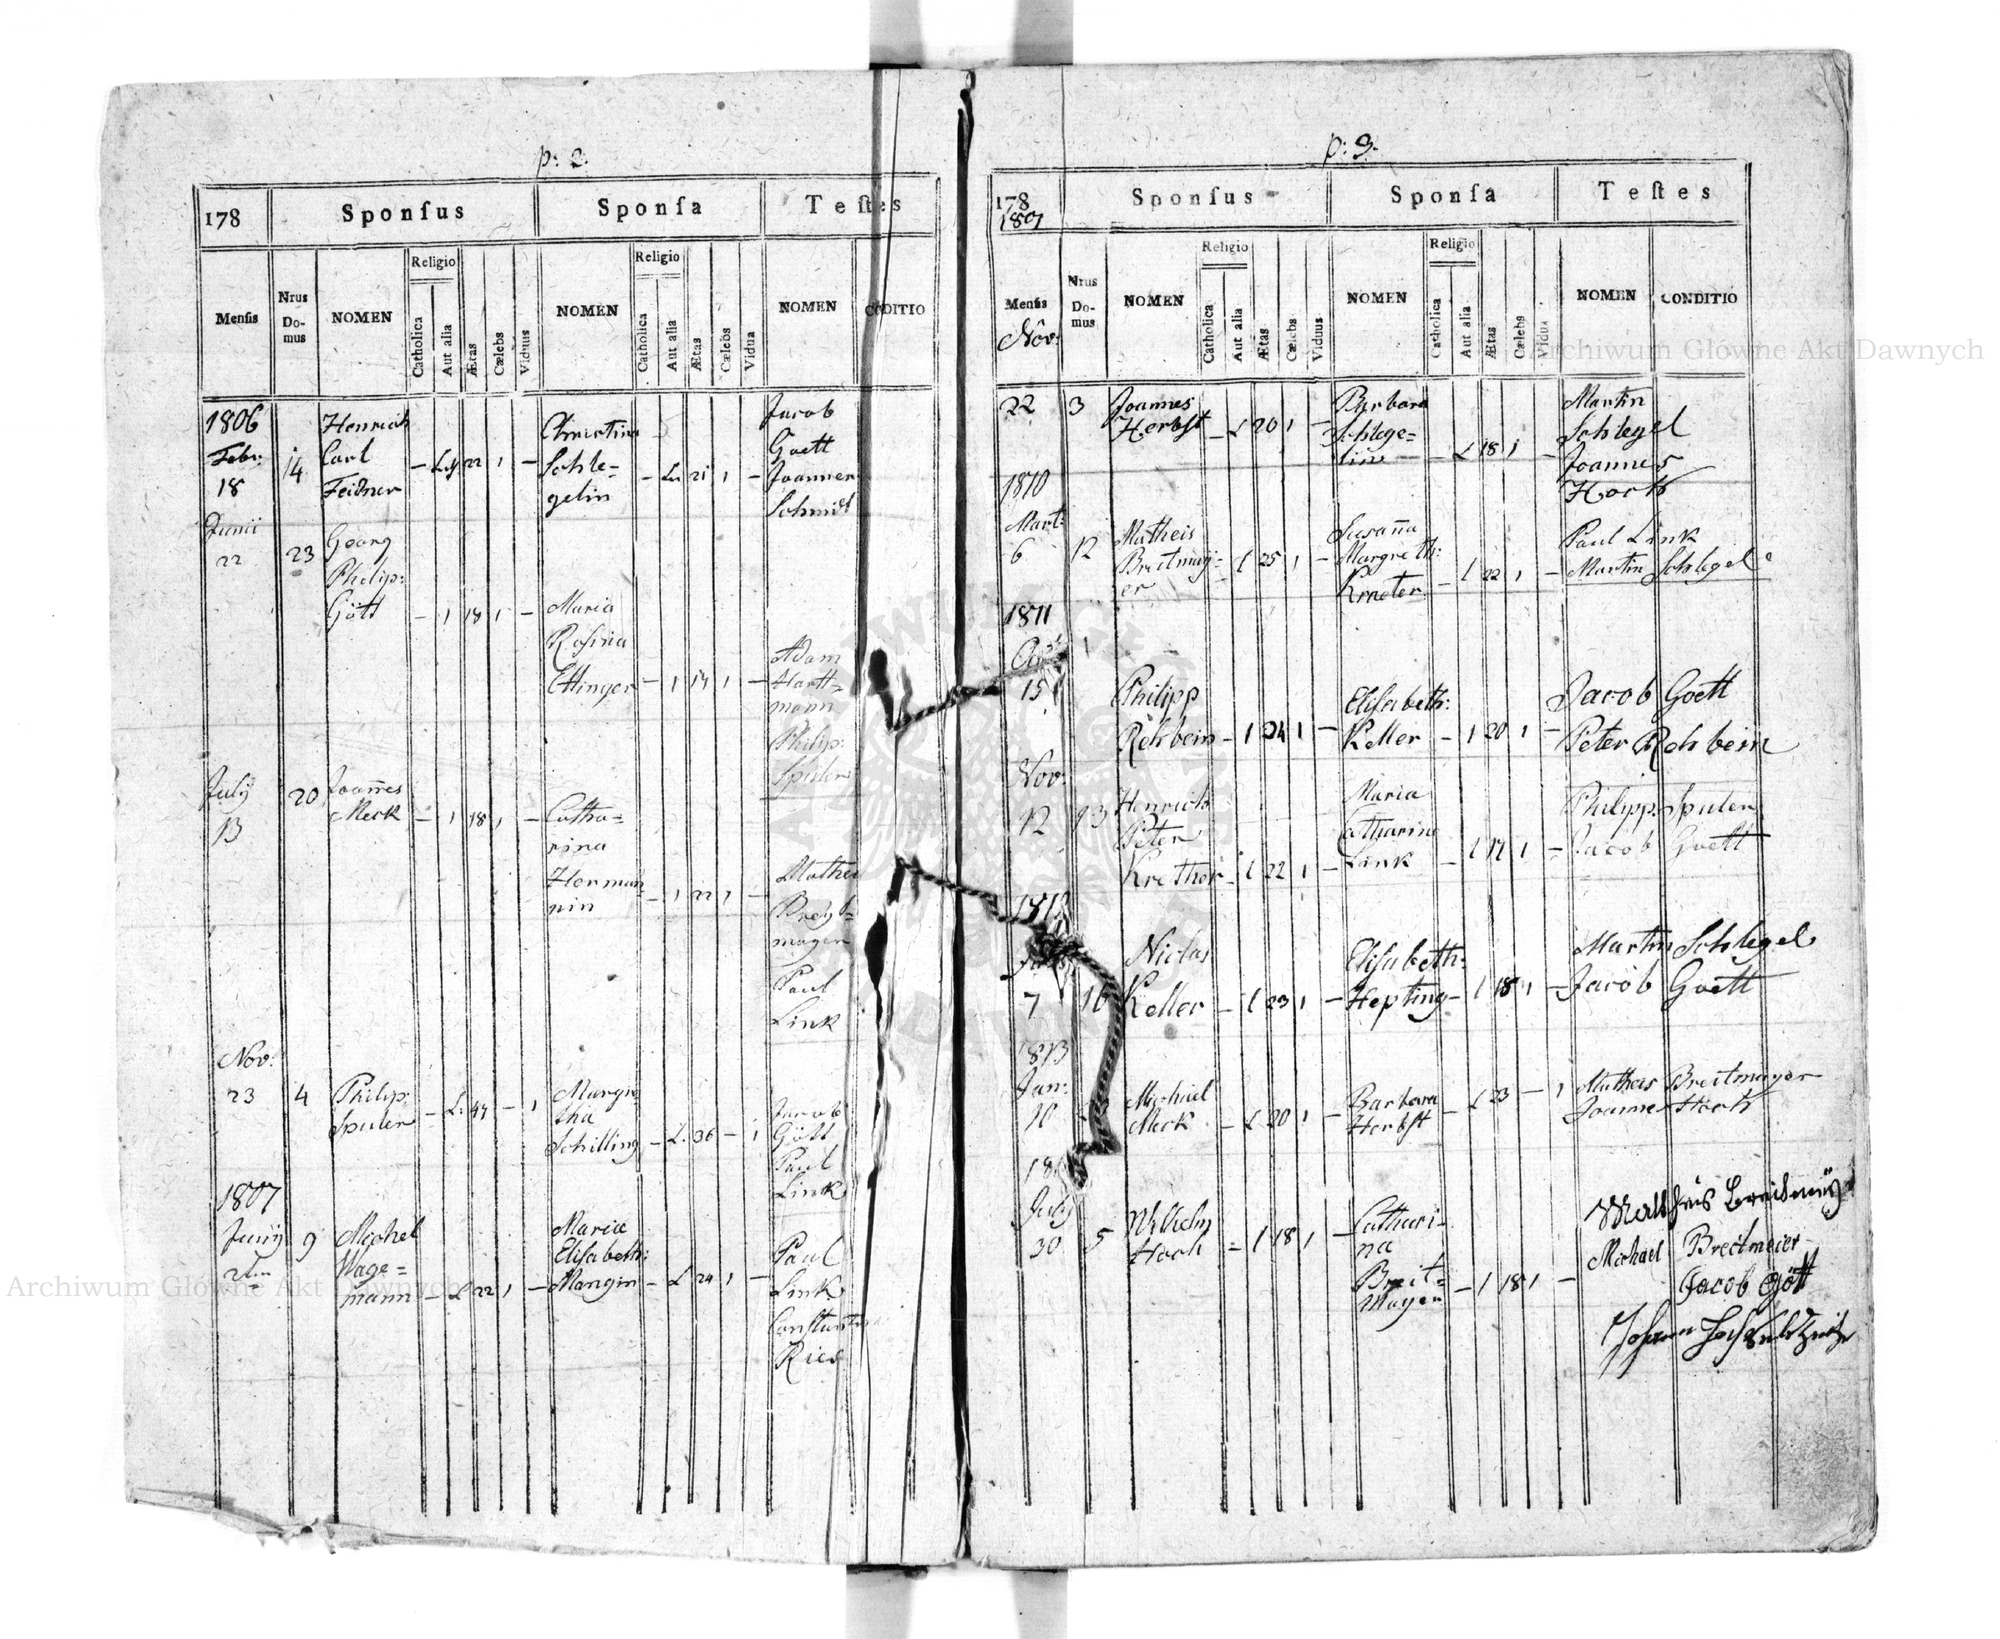 p: 2.
178 Sponſus Sponſa Teſtes
Menſis Nrus Do- mus NOMEN Religio Catholica Aut alia Ætas Cælebs Viduus NOMEN Religio Catholica Aut alia Ætas Cælebs Vidua NOMEN CODITIO
1806
Febr:
18
14
Henrich
Carl
Feidner
22 1 –
Christina
Schle=
gelin
21 1 –
Jacob
Goett
Joannes
Schmidt
Junii
22
23
Georg
Philip:
Gött – 1 18 1 –
Maria
Rosina
Ettinger – 1 17 1 –
Adam
Hartt=
mann
Philip:
Spuler
July
13
20
Joannes
Meck – 1 18 1 –
Catha=
rina
Herman
nin – 1 22 1 –
Mathei
Breyt=
mayer
Paul
Link
Nov:
23
4
Philip:
Spuler – L: 47 – 1
Margre
tha
Schilling – L. 36 – 1
Jacob
Gött
Paul
Link
1807
Junij
9
Michel
Wage=
mann – L 22 1 –
Maria
Elisabeth:
Mangin – L 24 1 –
Paul
Link
Constantin
Ries
p: 3.
178 Sponſus Sponſa Teſtes
1807
Menſis Nrus Do- mus NOMEN Religio Catholica Aut alia Ætas Cælebs Viduus NOMEN Religio Catholica Aut alia Ætas Cælebs Vidua NOMEN CONDITIO
Nov:
22
3
Joannes
Herbst – L 20 1 –
Barbara
Schlege=
lin – L 18 1 –
Martin
Schlegel
Joannes
Hoch
1810
Mart:
6
12
Matheis
Breitmay=
er – l 25 1 –
Susaña
Margreth:
Kraeter – l 22 1 –
Paul Link
Martin Schlegel
1811
15
Philipp
Rehbein – l 24 1 –
Elisabeth:
Keller – l 20 1 –
Jacob Goett
Peter Rehbein
Nov:
12
13
Henrich
Peter
Krether – l 22 1 –
Maria
Catharina
Link – l 17 1 –
Philipp: Spuler
Jacob Goett
181
7
16
Niclas
Keller – l 23 1 –
Elisabeth:
Hepting – l 18 1 –
Martin Schlegel
Jacob Goett
1813
Jan:
Michael
Meck – L 20 1 –
Barbara
Herbst – L 23 – 1
Matheis Breitmayer
Joannes Hoch
18
July
30
5
Wilhelm
Hoch – l 18 1 –
Cathari-
na
Breit=
mayer – l 18 1 –
Michael Breitmeier
Jacob Gött
Johann
Archiwum Główne Akt Dawnych
Archiwum Główne Akt Dawnych